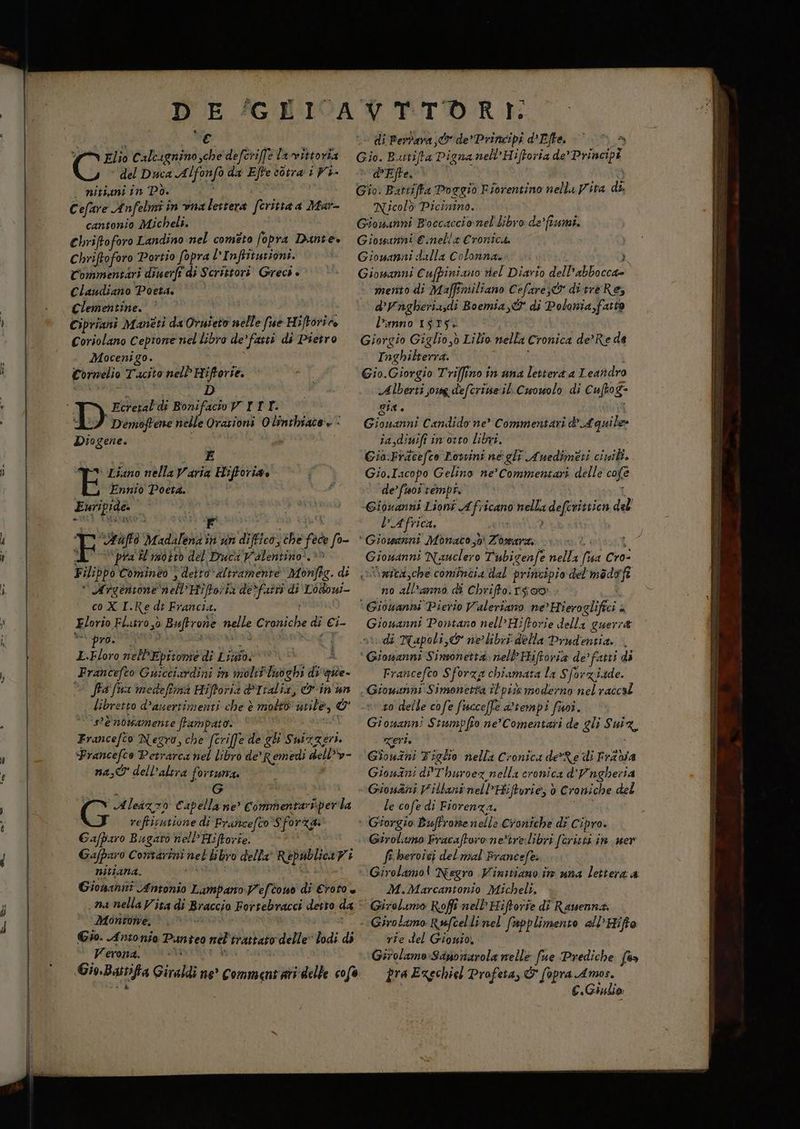 DE GLI AVTTORI.
C
CElio Calcagnino, che descrisse la vittoria
del Duca Alfonso da Este cōtra i Vi-
nitiani in Pò.
Cesare Anselmi in vna lettera scritta a Mar-
cantonio Micheli.
Christoforo Landino nel comēto sopra Dante.
Christoforo Portio sopra l'Institutioni.
Commentari diuersi di Scrittori Greci.
Claudiano Poeta.
Clementine.
Cipriani Manēti da Oruieto nelle sue Historie.
Coriolano Cepione nel libro de' fatti di Pietro
Mocenigo.
Cornelio Tacito nell'Historie.
D
DEcretal di Bonifacio VIII.
Demostene nelle Orationi Olinthiace.
Diogene.
E
ELiano nella Varia Historia.
Ennio Poeta.
Euripide.
F
FAusto Madalena in un distico, che fece so-
pra il motto del Duca Valentino.
Filippo Comineo, detto altramente Monsig. di
Argentone nell'Historia de' fatti di Lodoui-
co XI. Re di Francia.
Florio Flutro, ò Bustrone nelle Croniche di Ci-
pro.
L. Floro nell'Epitome di Liuio.
Francesco Guicciardini in molti luoghi di que-
sta sua medesima Historia d'Italia, & in un
libretto d'auertimenti che è molto utile, &
s'è nouamente stampato.
Francesco Negro, che scrisse de gli Suizzeri.
Francesco Petrarca nel libro de' Remedi dell'v-
na, & dell'altra fortuna.
G
GAleazzo Capella ne' Commentari per la
restitutione di Francesco Sforza.
Gasparo Bugato nell'Historie.
Gasparo Contarini nel libro della Republica Vi
nitiana.
Giouanni Antonio Lampano Vescouo di Croto
na nella Vita di Braccio Fortebracci detto da
Montone.
Gio. Antonio Panteo nel trattato delle lodi di
Verona.
Gio. Battista Giraldi ne' Commentari delle cose
di Ferrara, & de' Principi d'Este.
Gio. Battista Pigna nell'Historia de' Principi
d'Este.
Gio. Battista Poggio Fiorentino nella Vita di
Nicolò Picinino.
Giouanni Boccaccio nel libro de' fiumi.
Giouanni C. nella Cronica.
Giouanni dalla Colonna.
Giouanni Cuspiniano nel Diario dell'abbocca-
mento di Massimiliano Cesare, & di tre Re,
d'Vngheria, di Boemia, & di Polonia, fatto
l'anno 1515.
Giorgio Giglio, ò Lilio nella Cronica de' Re de
Inghilterra.
Gio. Giorgio Trissino in una lettera a Leandro
Alberti, oue descriue il Cuouolo di Custog-
gia.
Giouanni Candido ne' Commentari d'Aquile-
ia, diuisi in otto libri.
Gio. Frācesco Lottini ne gli Auedimēti ciuili.
Gio. Iacopo Gelino ne' Commentari delle cose
de' suoi tempi.
Giouanni Lioni Africano nella descrittion del
l'Africa.
Giouanni Monaco, ò Zonara.
Giouanni Nauclero Tubigense nella sua Cro-
nica, che comincia dal principio del mōdo fi
no all'anno di Christo. 1500
Giouanni Pierio Valeriano ne' Hieroglifici.
Giouanni Pontano nell'Historie della guerra
di Napoli, & ne' libri della Prudentia.
Giouanni Simonetta nell'Historia de' fatti di
Francesco Sforza chiamata la Sforziade.
Giouanni Simonetta il più moderno nel raccol
to delle cose successe a' tempi suoi.
Giouanni Stumpfio ne' Comentari de gli Suiz
zeri.
Giouāni Tiglio nella Cronica de' Re di Frācia
Giouāni di Thurocz nella cronica d'Vngheria
Giouāni Villani nell'Historie, ò Croniche del
le cose di Fiorenza.
Giorgio Bustrone nelle Croniche di Cipro.
Girolamo Fracastoro ne' tre libri scritti in uer
si heroici del mal Francese.
Girolamo Negro Vinitiano in una lettera a
M. Marcantonio Micheli.
Girolamo Rossi nell'Historie di Rauenna.
Girolamo Ruscelli nel supplimento all'Histo
rie del Giouio.
Girolamo Sauonarola nelle sue Prediche so-
pra Ezechiel Profeta, & sopra Amos.
C. Giulio